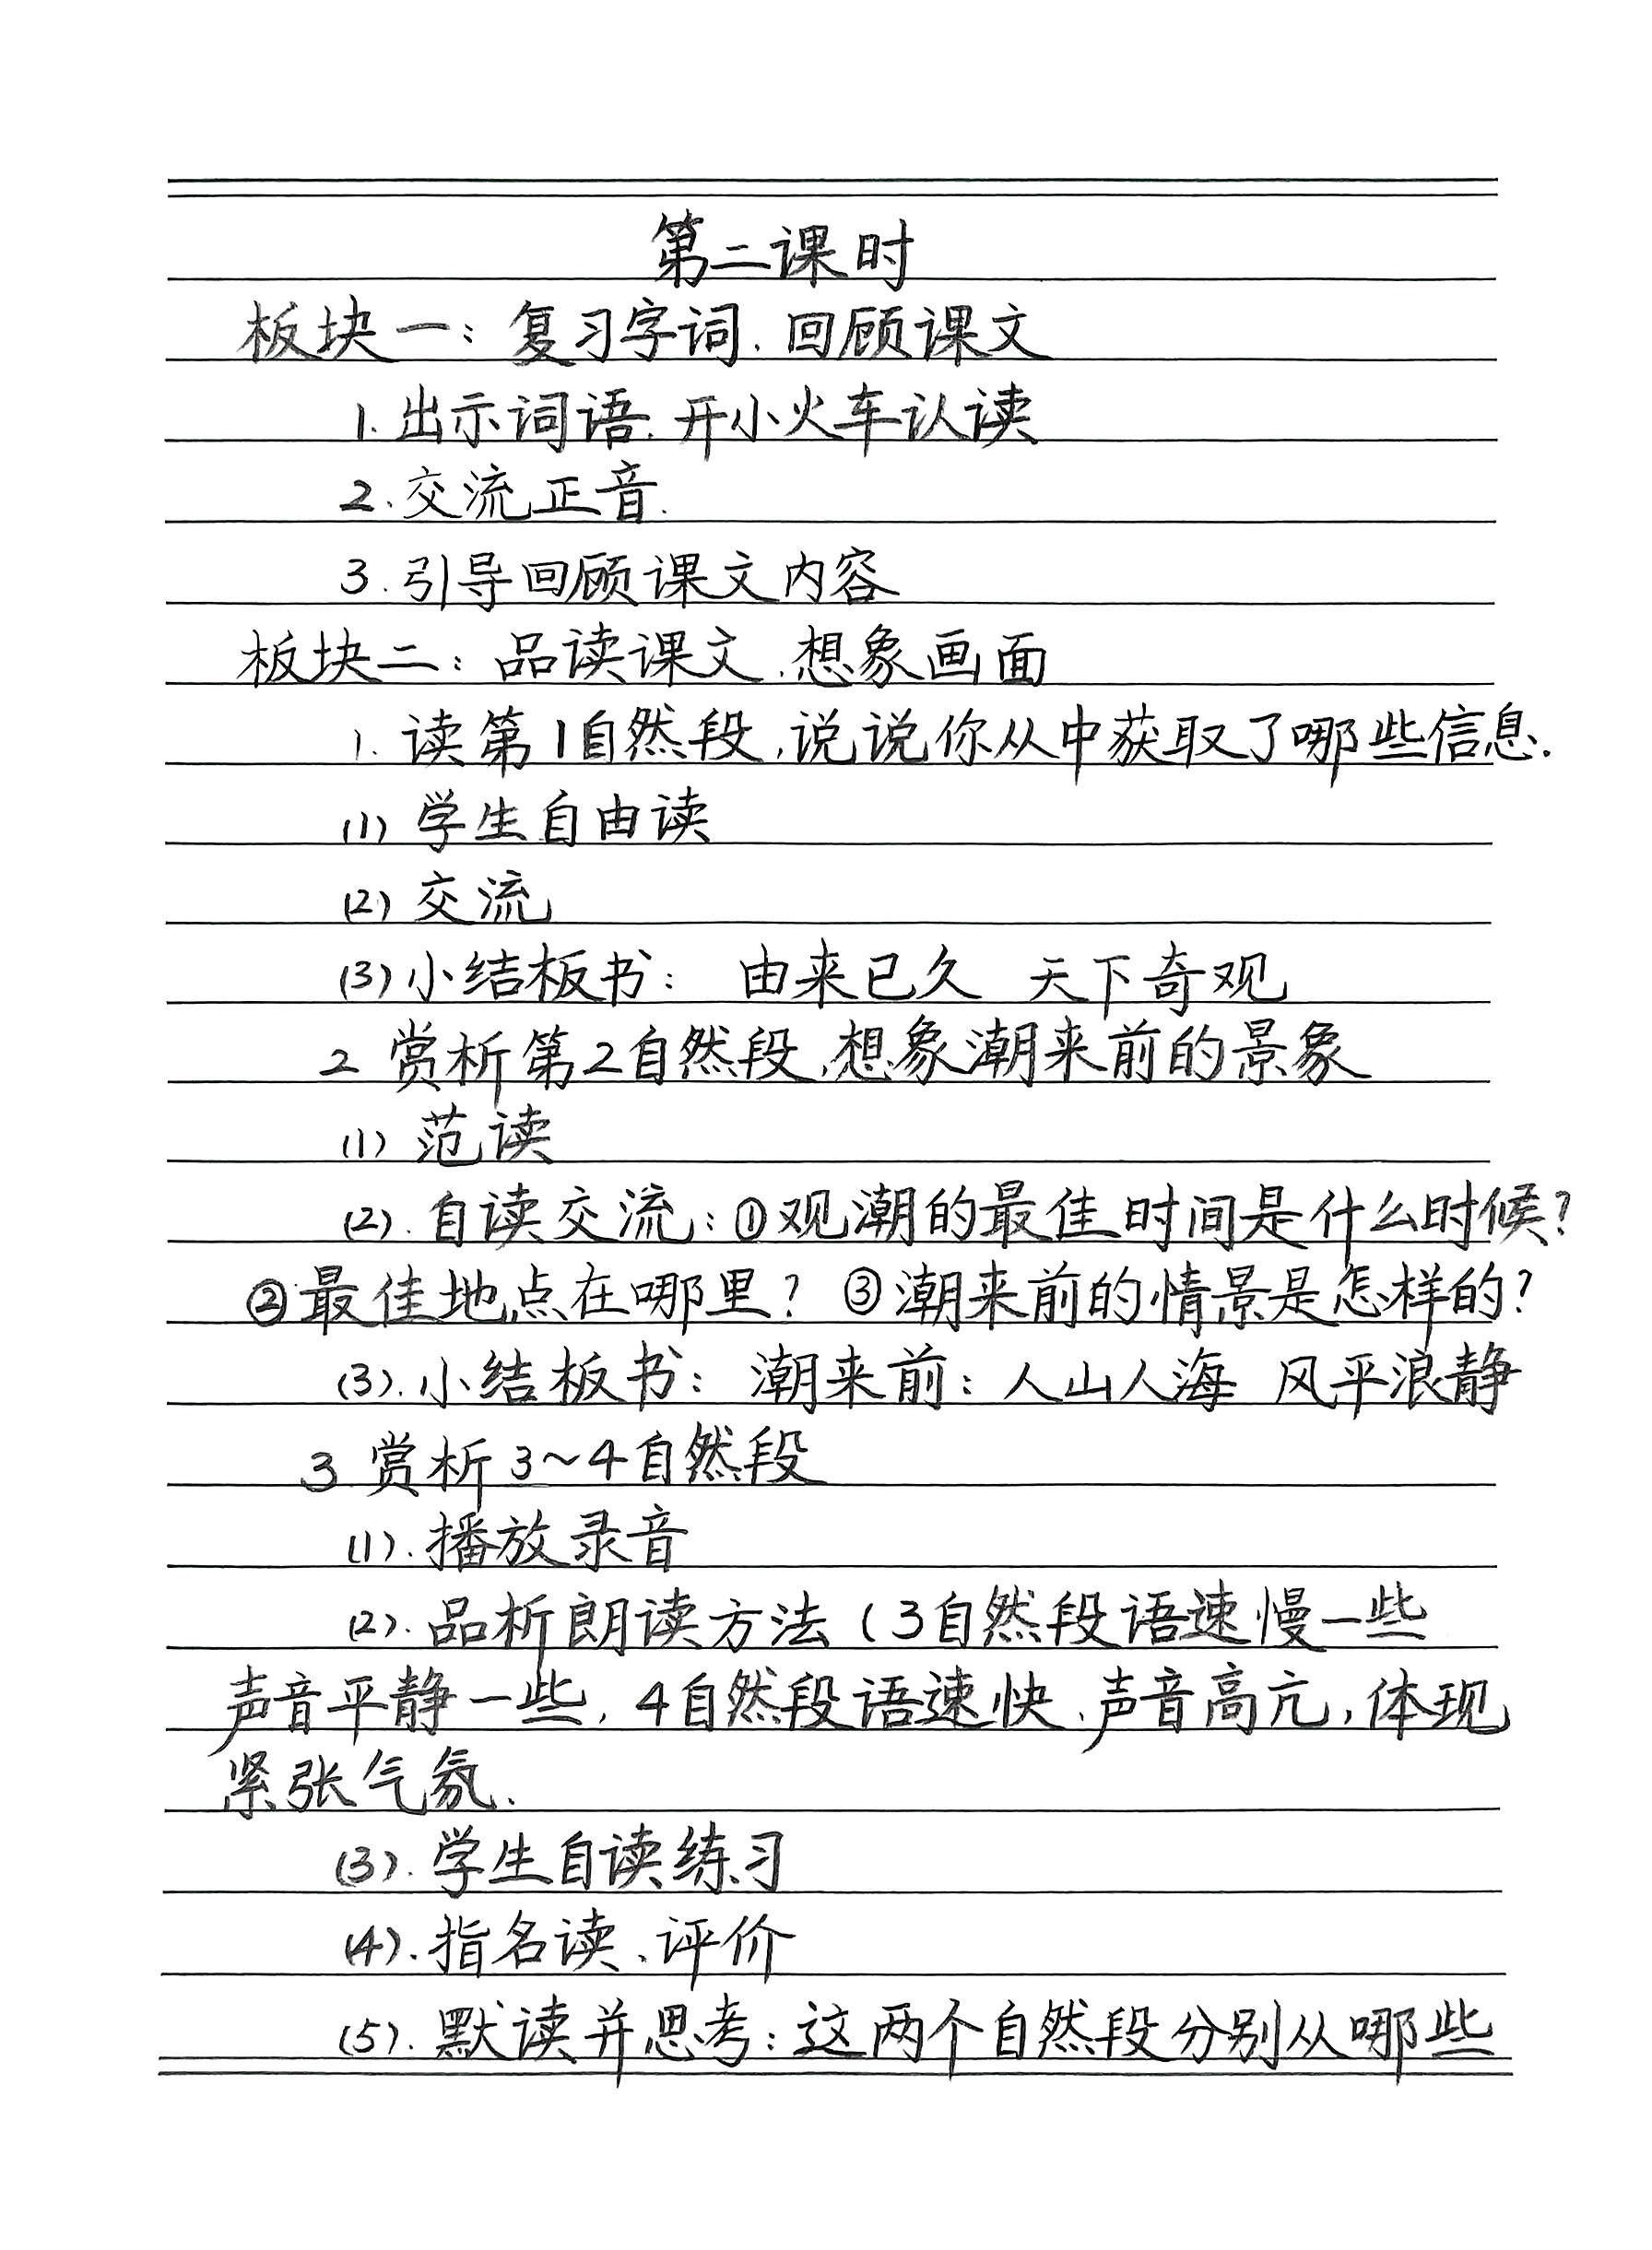 第二课时
板块一：复习字词、回顾课文
1. 出示词语、开小火车认读
2. 交流正音.
3. 引导回顾课文内容
板块二：品读课文、想象画面
1. 读第1自然段，说说你从中获取了哪些信息.
(1) 学生自由读
(2) 交流
(3) 小结板书：由来已久 天下奇观
2 赏析第2自然段，想象潮来前的景象
(1) 范读
(2). 自读交流：①观潮的最佳时间是什么时候？
②最佳地点在哪里？③潮来前的情景是怎样的？
(3). 小结板书：潮来前：人山人海 风平浪静
3 赏析3~4自然段
(1). 播放录音
(2). 品析朗读方法（3自然段语速慢一些
声音平静一些，4自然段语速快、声音高亢，体现
紧张气氛.
(3). 学生自读练习
(4). 指名读、评价
(5). 默读并思考：这两个自然段分别从哪些